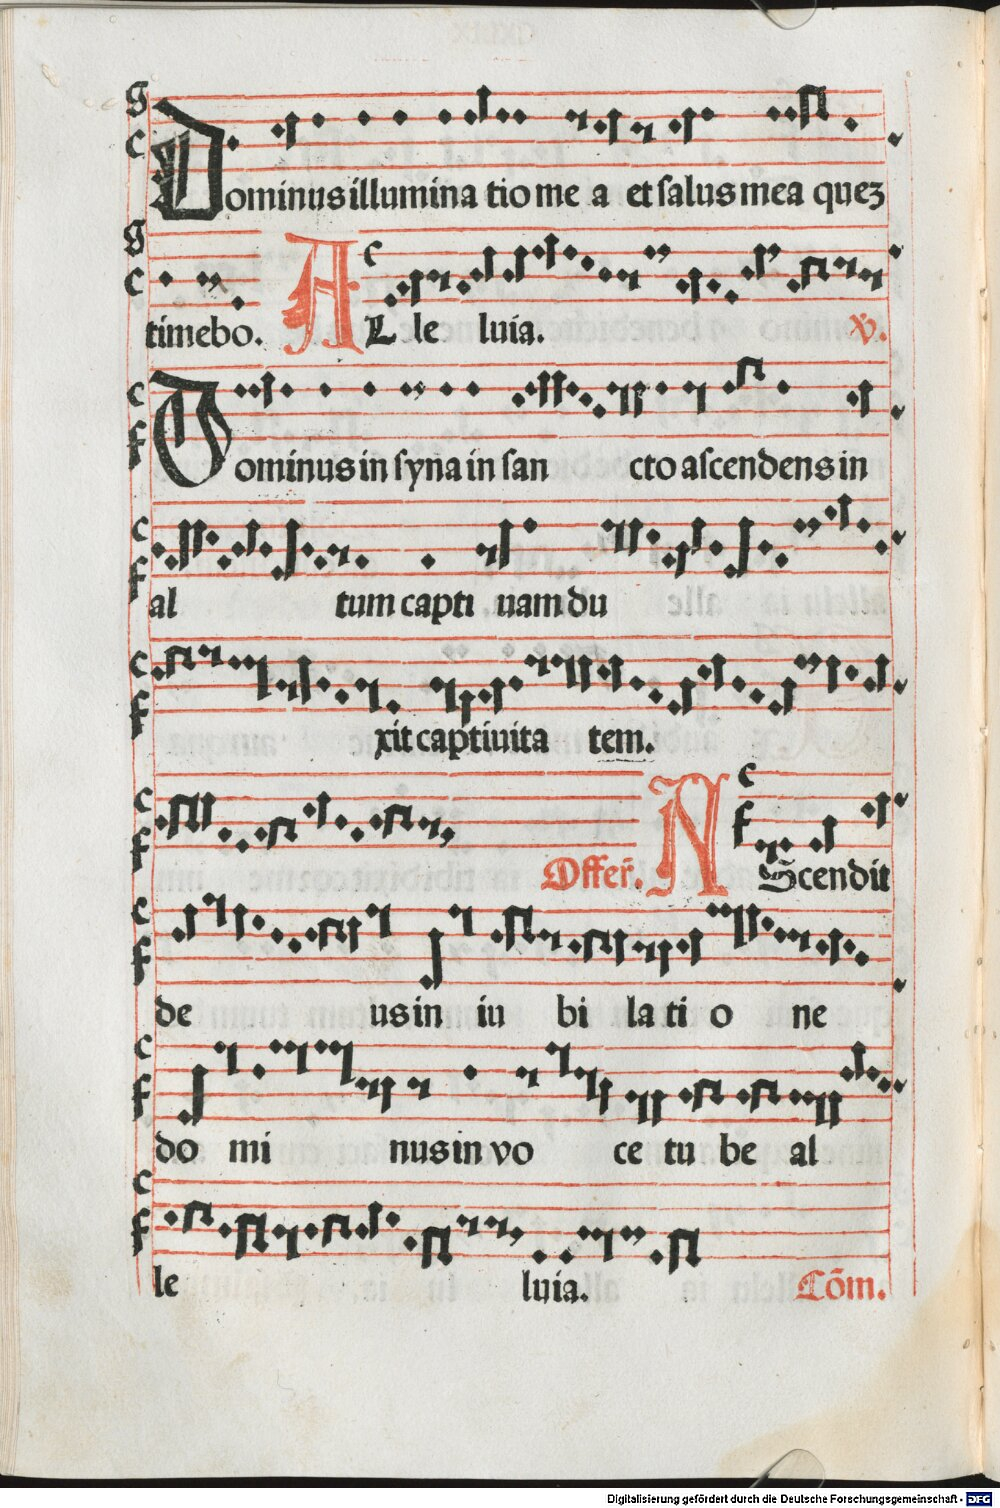 Dominus illumina tio me a et salus mea quez
timebo. AL le luia. v.
Dominus in syna in san cto ascendens in
al tum capti uam du
xit captiuita tem.
Offer̄. AScendit
de us in iu bi la ti o ne
do mi nus in vo ce tu be al
le luia. Cōm.
Digitalisierung gefördert durch die Deutsche Forschungsgemeinschaft - DFG